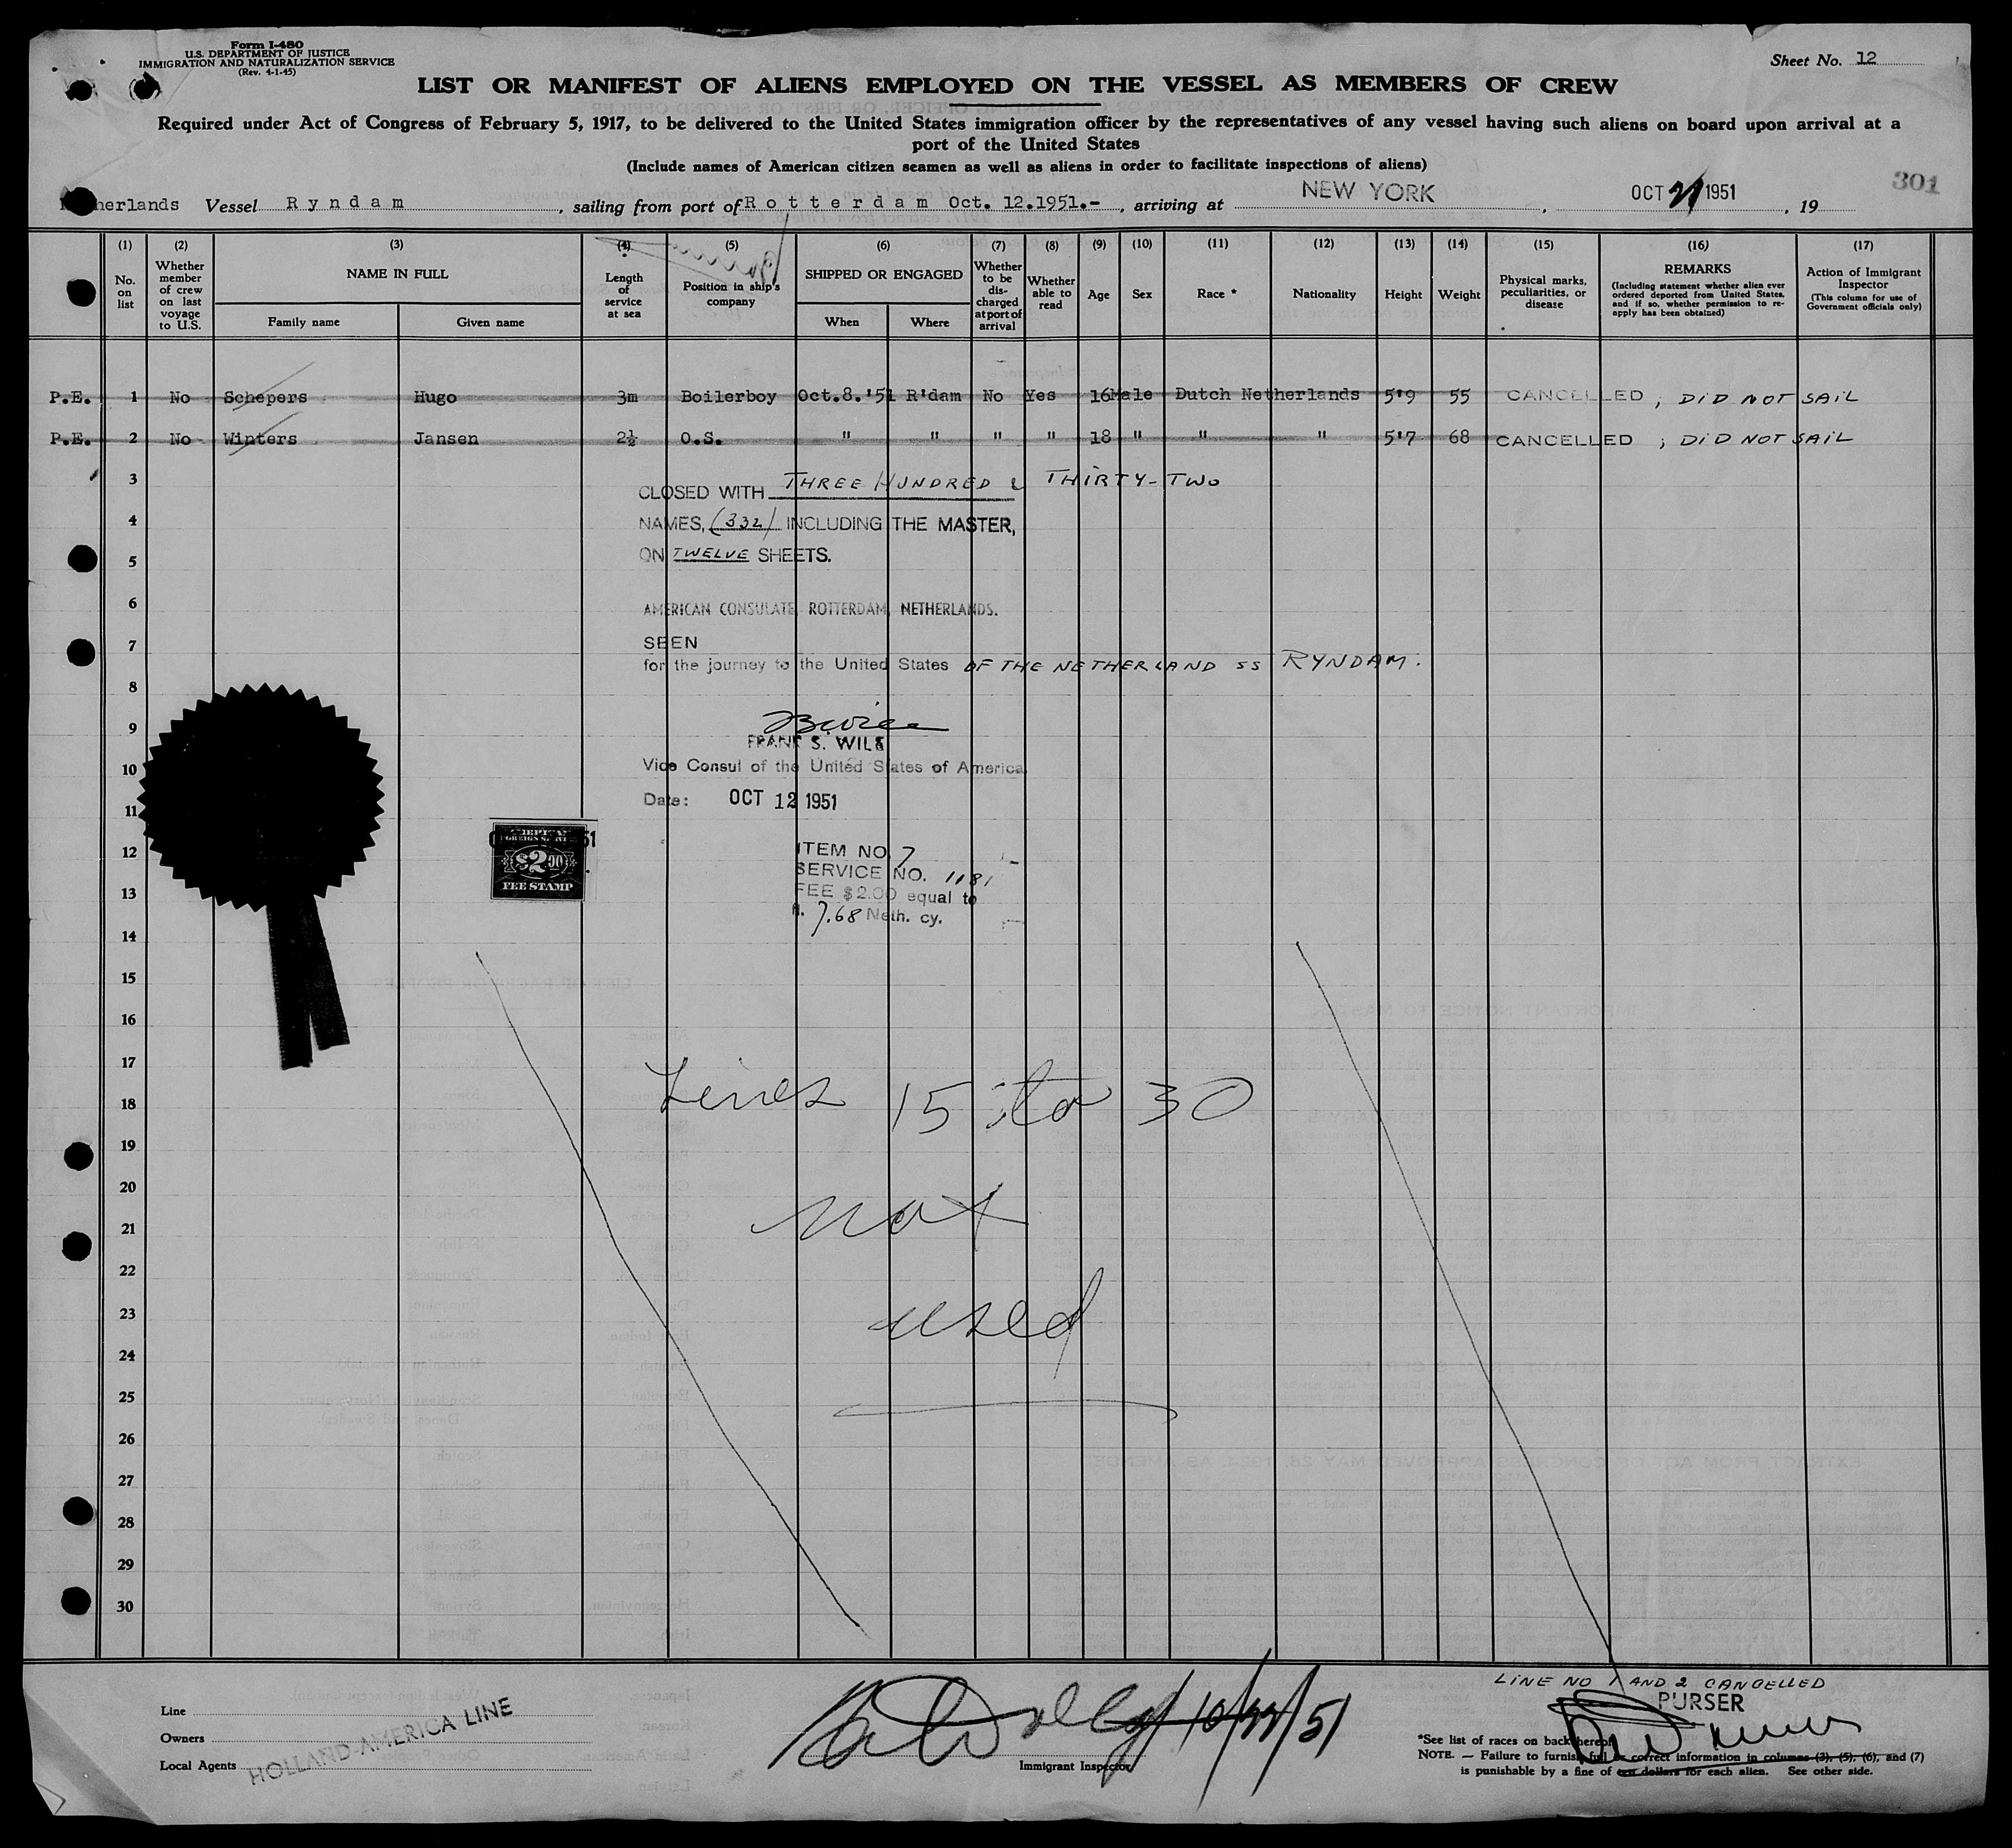 Form I-480
U.S. DEPARTMENT OF JUSTICE
IMMIGRATION AND NATURALIZATION SERVICE
(Rev. 4-1-45)
Sheet No. 12
LIST OR MANIFEST OF ALIENS EMPLOYED ON THE VESSEL AS MEMBERS OF CREW
Required under Act of Congress of February 5, 1917, to be delivered to the United States immigration officer by the representatives of any vessel having such aliens on board upon arrival at a
port of the United States
(Include names of American citizen seamen as well as aliens in order to facilitate inspections of aliens)
301
herlands Vessel Ryndam, sailing from port of Rotterdam Oct. 12.1951.-, arriving at NEW YORK, OCT 21 1951, 19
(1) (2) (3) (4) (5) (6) (7) (8) (9) (10) (11) (12) (13) (14) (15) (16) (17)
No. on list
Whether member of crew on last voyage to U.S.
NAME IN FULL
Family name Given name
Length of service at sea
Position in ship's company
SHIPPED OR ENGAGED
When Where
Whether to be discharged at port of arrival
Whether able to read
Age
Sex
Race *
Nationality
Height
Weight
Physical marks, peculiarities, or disease
REMARKS
(Including statement whether alien ever ordered deported from United States, and if so, whether permission to re-apply has been obtained)
Action of Immigrant Inspector
(This column for use of Government officials only)
P.E. 1 No Schepers Hugo 3m Boilerboy Oct.8.'51 R'dam No Yes 16 Male Dutch Netherlands 5'9 55 CANCELLED ; DID NOT SAIL
P.E. 2 No Winters Jansen 2½ O.S. " " " " 18 " " " 5'7 68 CANCELLED ; DID NOT SAIL
3
CLOSED WITH THREE HUNDRED & THIRTY-TWO
4
NAMES, (332) INCLUDING THE MASTER,
5
ON TWELVE SHEETS.
6
AMERICAN CONSULATE, ROTTERDAM, NETHERLANDS.
7
SEEN
for the journey to the United States OF THE NETHERLAND SS RYNDAM.
8
9
FRANK S. WILE
10
Vice Consul of the United States of America
11
Date: OCT 12 1951
51
FOREIGN SERVICE
$2.00
FEE STAMP
12
ITEM NO. 7
SERVICE NO. 1181
13
FEE $2.00 equal to
fl. 7.68 Neth. cy.
14
15
16
17
18
Lines 15 to 30
19
20
21
not
22
23
used
24
25
26
27
28
29
30
LINE NO 1 AND 2 CANCELLED
PURSER
Line
Owners
Local Agents
HOLLAND-AMERICA LINE
10/22/51
Immigrant Inspector
*See list of races on back hereof.
NOTE. — Failure to furnish full or correct information in columns (3), (5), (6), and (7)
is punishable by a fine of ten dollars for each alien. See other side.